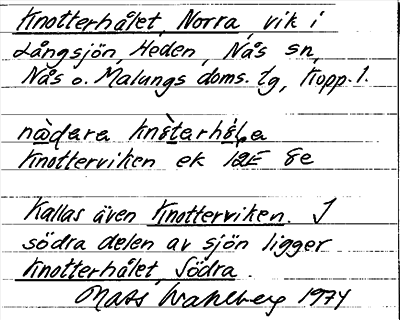 Knotterhålet, Norra, vik i
Långsjön, Heden, Nås sn,
Nås o. Malungs doms. tg, Kopp. l.
nɑ̀dara knòtarhɷ̀La
Knotterviken ek 12E 8e
Kallas även Knotterviken. I
södra delen av sjön ligger
Knotterhålet, Södra.
Mats Wahlberg 1974